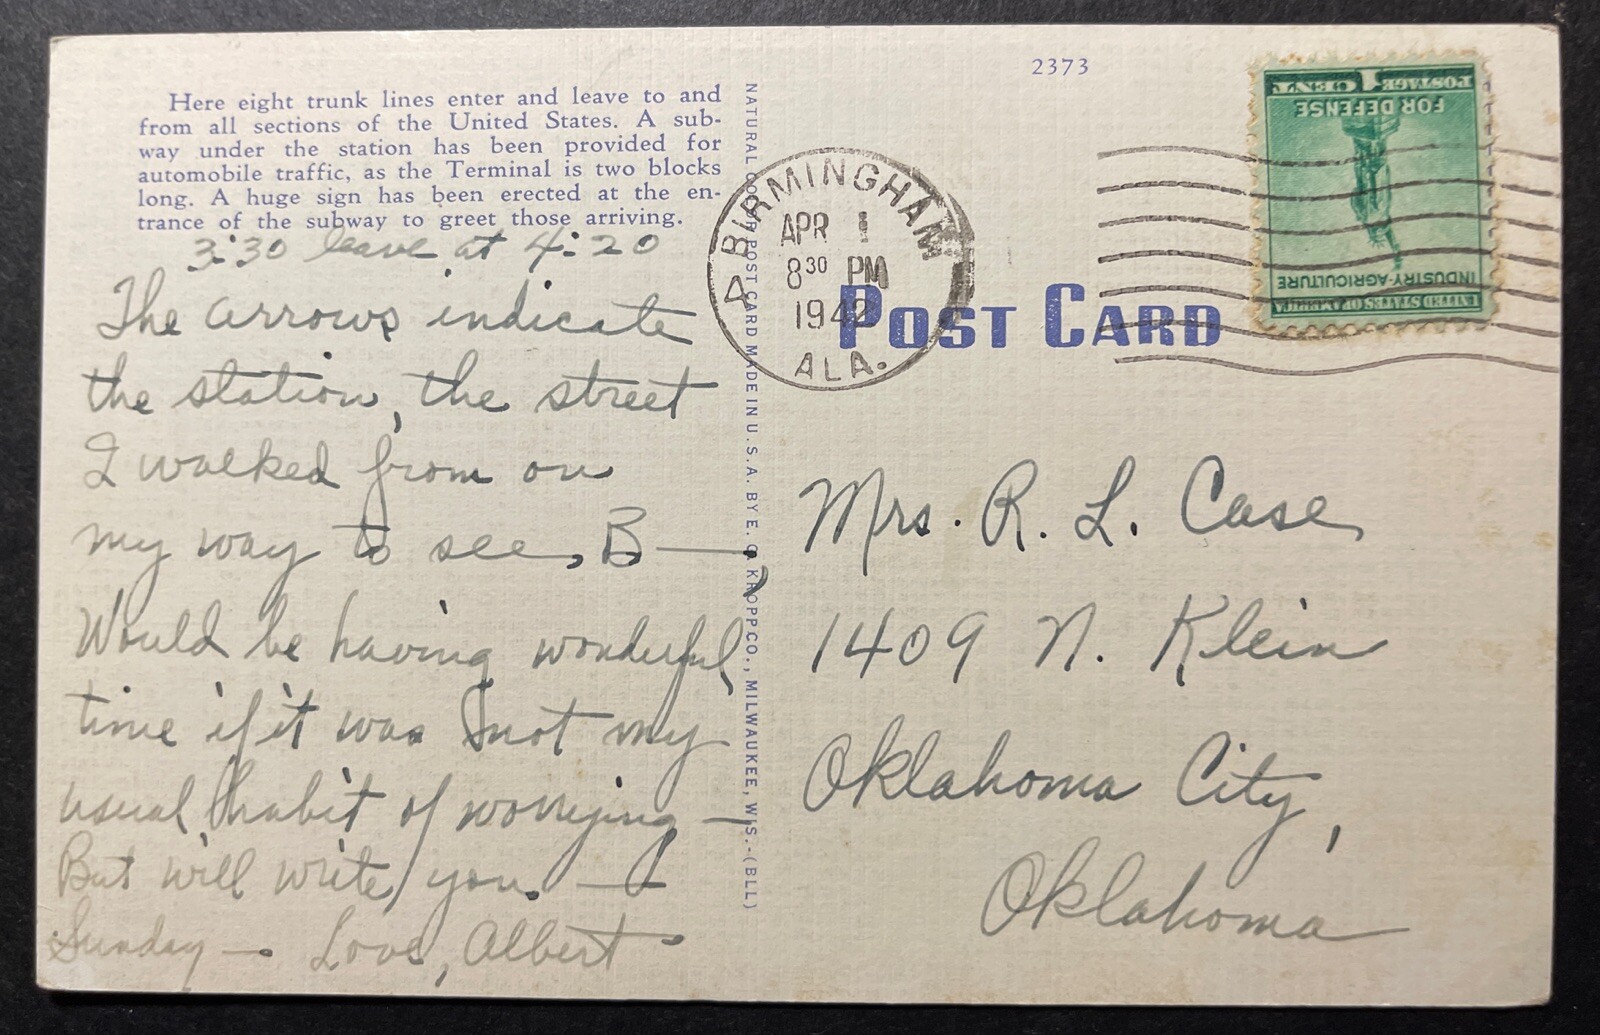 Here eight trunk lines enter and leave to and
from all sections of the United States. A sub-
way under the station has been provided for
automobile traffic, as the Terminal is two blocks
long. A huge sign has been erected at the en-
trance of the subway to greet those arriving.
3:30 leave at 4:20
The arrows indicate
the station, the street
I walked from on
my way to see, B—
Would be having wonderful
time if it was not my
usual habit of worrying —
But will write you. —
Sunday — Love, Albert
NATURAL COLOR POST CARD MADE IN U.S.A. BY E. C. KROPP CO., MILWAUKEE, WIS.-(BLL)
2373
BIRMINGHAM
APR 1
8 30 PM
1942
ALA.
POST CARD
POSTAGE 1 CENT
FOR DEFENSE
INDUSTRY-AGRICULTURE
UNITED STATES OF AMERICA
Mrs. R. L. Case
1409 N. Klein
Oklahoma City,
Oklahoma